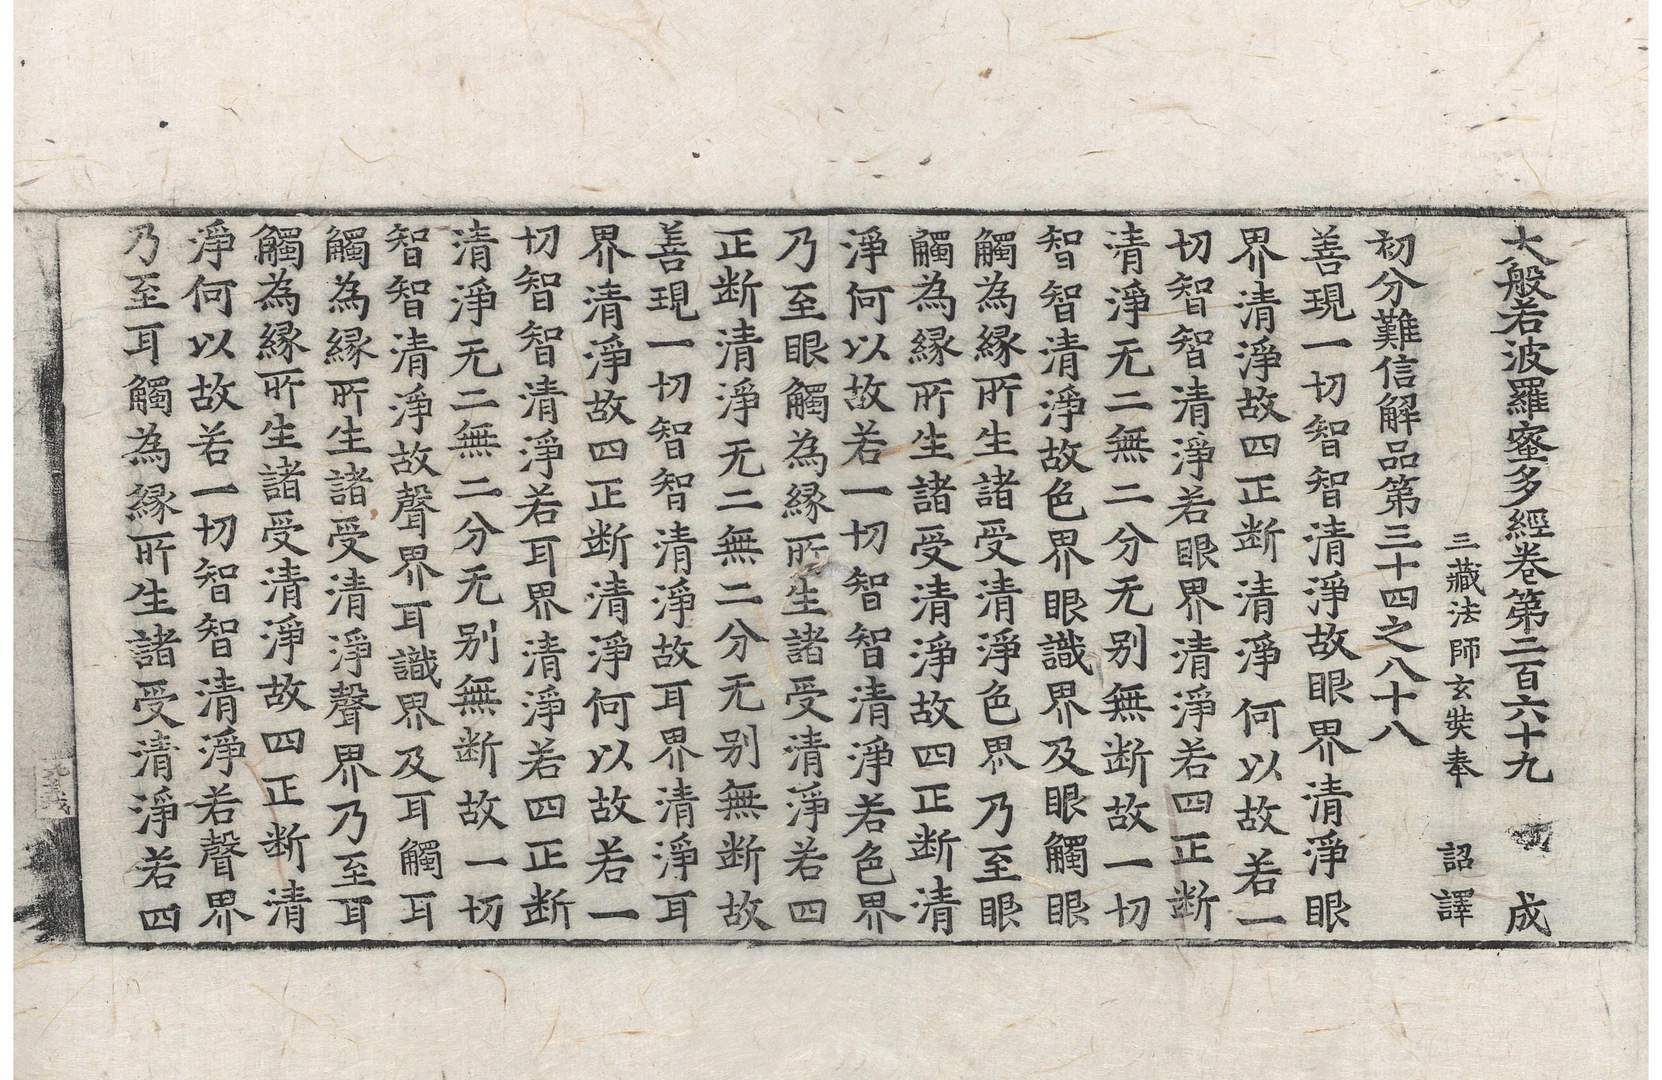 大般若波羅蜜多經卷第二百六十九　成
三藏法師玄奘奉　詔譯
初分難信解品第三十四之八十八
善現一切智智清淨故眼界清淨眼
界清淨故四正断清淨何以故若一
切智智清淨若眼界清淨若四正断
清淨无二無二分无别無断故一切
智智清淨故色界眼識界及眼觸眼
觸為縁所生諸受清淨色界乃至眼
觸為縁所生諸受清淨故四正断清
淨何以故若一切智智清淨若色界
乃至眼觸為縁所生諸受清淨若四
正断清淨无二無二分无别無断故
善現一切智智清淨故耳界清淨耳
界清淨故四正断清淨何以故若一
切智智清淨若耳界清淨若四正断
清淨无二無二分无别無断故一切
智智清淨故聲界耳識界及耳觸耳
觸為縁所生諸受清淨聲界乃至耳
觸為縁所生諸受清淨故四正断清
淨何以故若一切智智清淨若聲界
乃至耳觸為縁所生諸受清淨若四